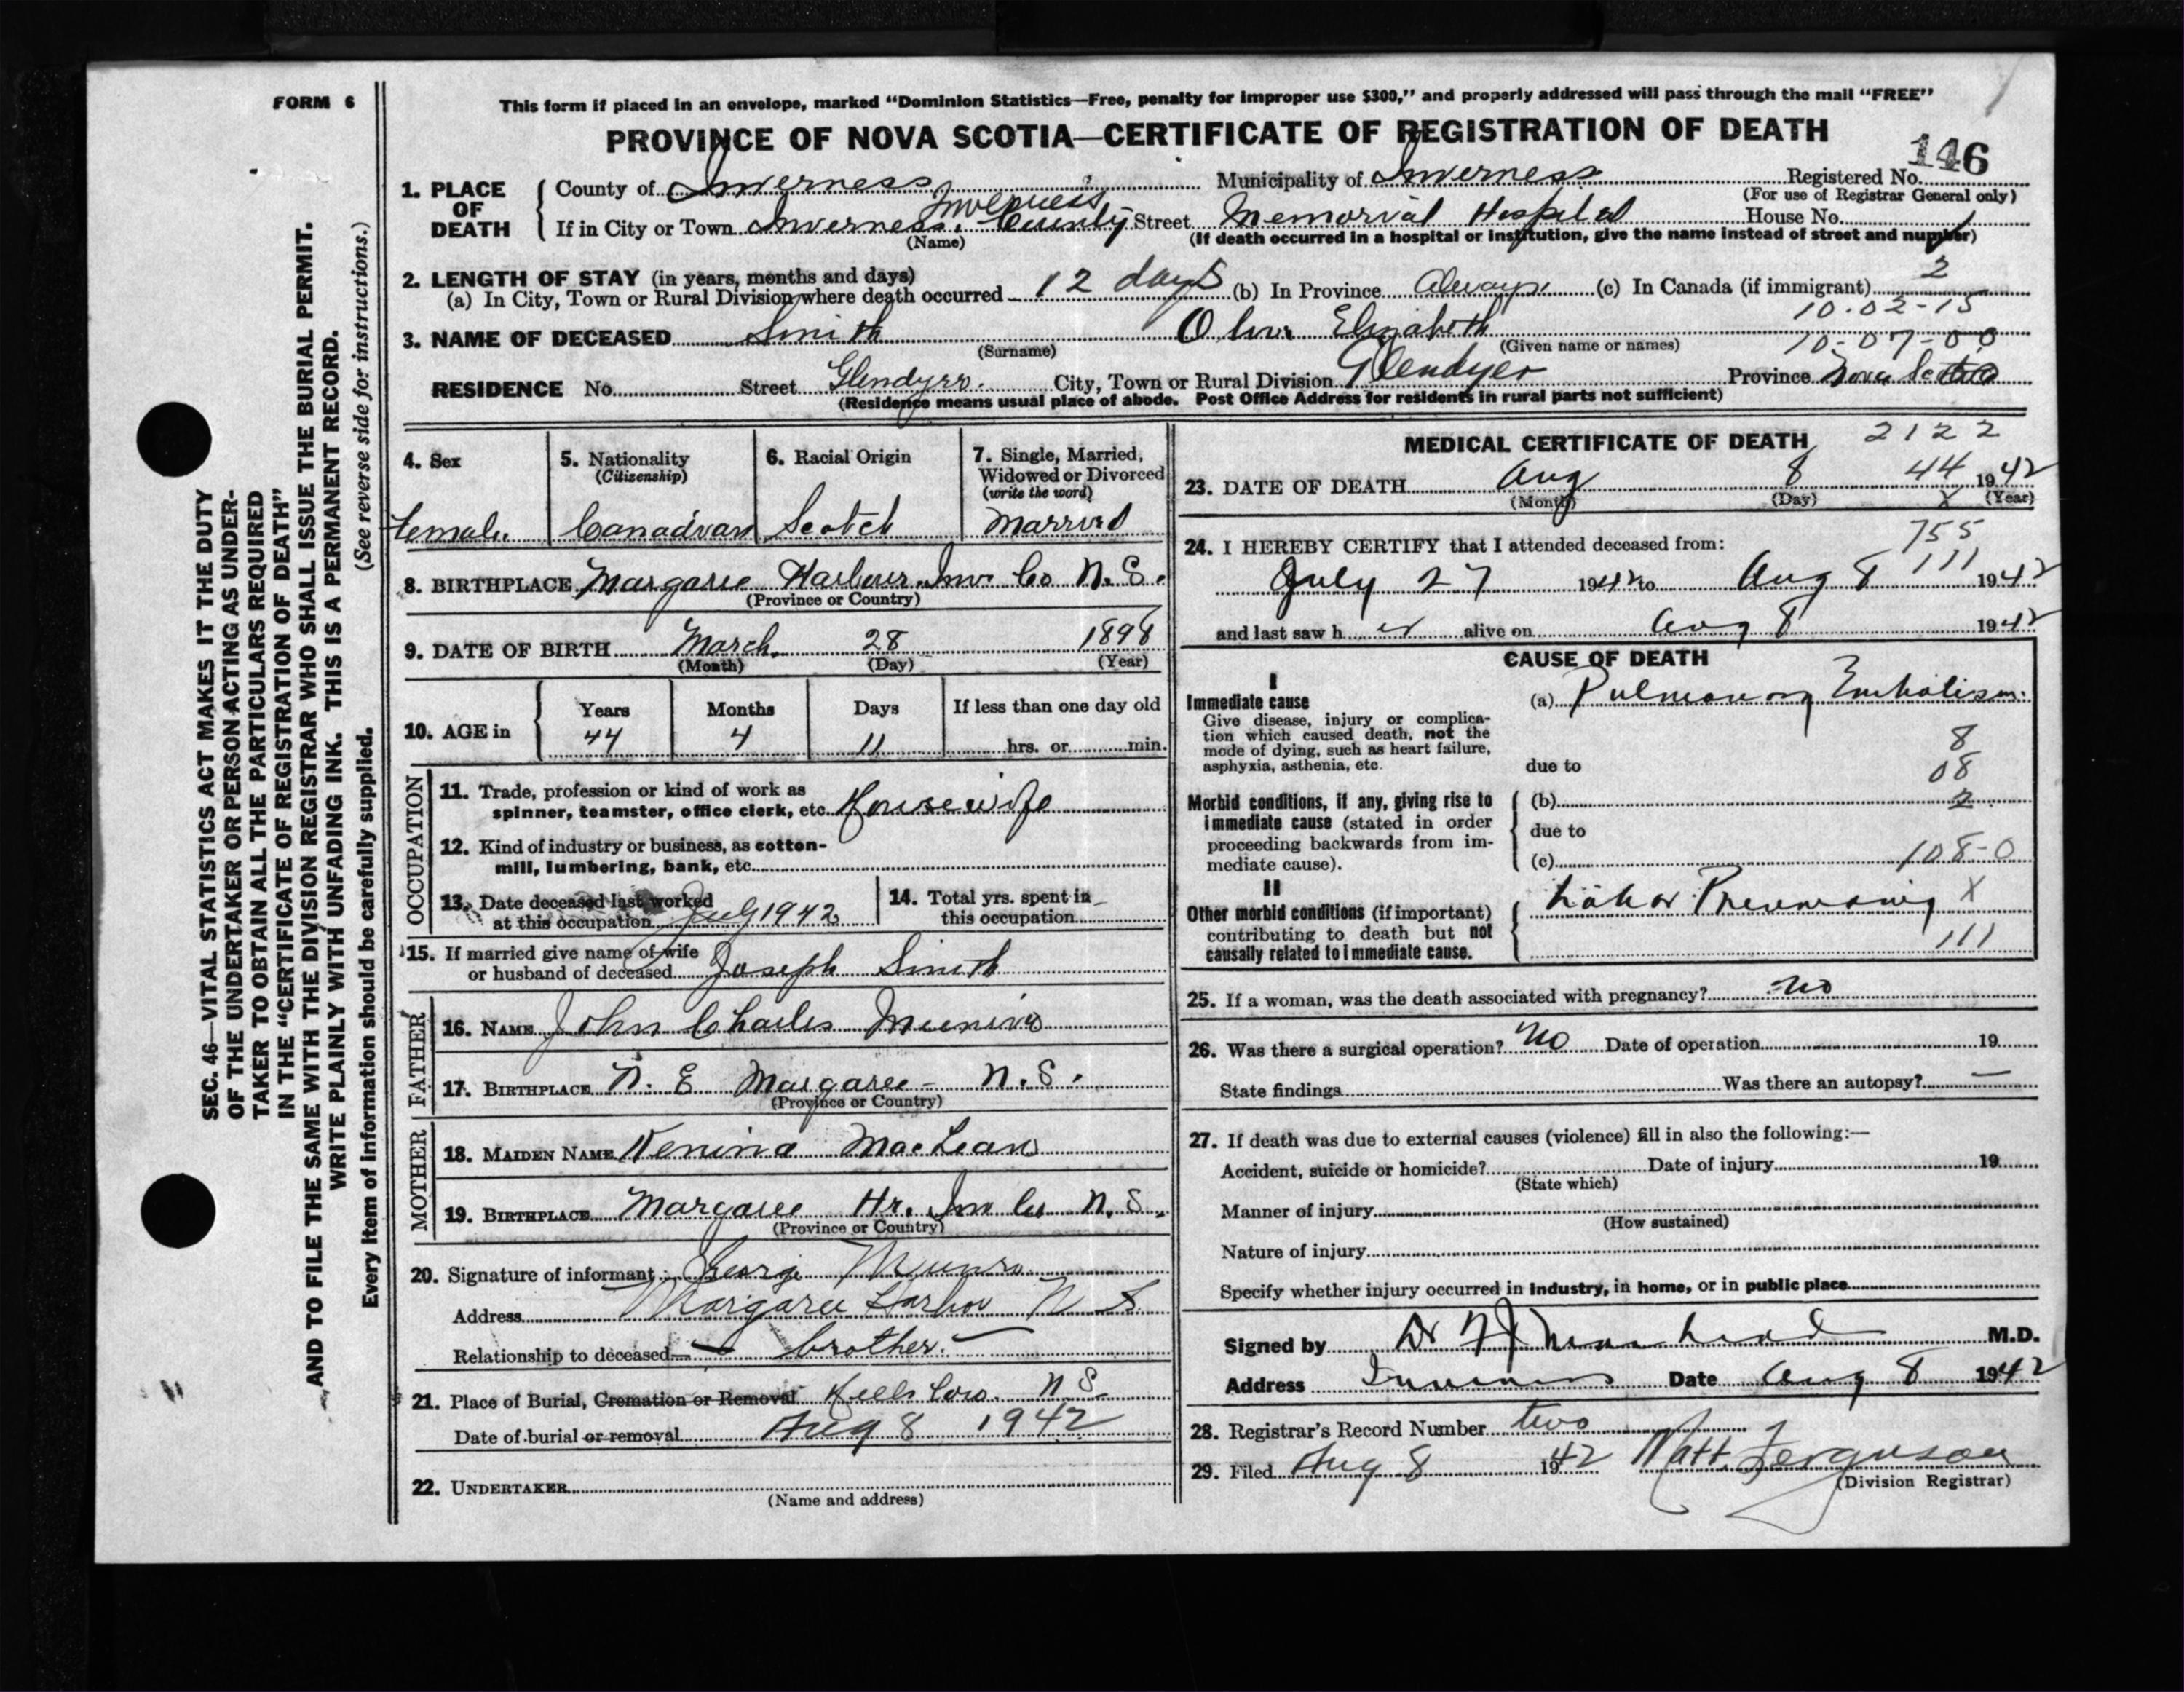 FORM 6
This form if placed in an envelope, marked “Dominion Statistics—Free, penalty for improper use $300,” and properly addressed will pass through the mail “FREE”
PROVINCE OF NOVA SCOTIA—CERTIFICATE OF REGISTRATION OF DEATH
146
1. PLACE OF DEATH
County of Inverness Municipality of Inverness Registered No.
(For use of Registrar General only)
If in City or Town Inverness. Inverness County Street Memorial Hospital House No.
(Name) (If death occurred in a hospital or institution, give the name instead of street and number)
2. LENGTH OF STAY (in years, months and days)
(a) In City, Town or Rural Division where death occurred 12 days (b) In Province Always (c) In Canada (if immigrant) 2
10-02-15
3. NAME OF DECEASED Smith Olive Elizabeth
(Surname) (Given name or names) 10-07-00
RESIDENCE No. Street Glendyer. City, Town or Rural Division Glendyer Province Nova Scotia
(Residence means usual place of abode. Post Office Address for residents in rural parts not sufficient)
4. Sex
Female
5. Nationality
(Citizenship)
Canadian
6. Racial Origin
Scotch
7. Single, Married,
Widowed or Divorced
(write the word)
Married
8. BIRTHPLACE Margaree Harbour Inv. Co N.S.
(Province or Country)
9. DATE OF BIRTH March 28 1898
(Month) (Day) (Year)
10. AGE in
Years Months Days If less than one day old
44 4 11 hrs. or min.
OCCUPATION
11. Trade, profession or kind of work as
spinner, teamster, office clerk, etc. Housewife
12. Kind of industry or business, as cotton-
mill, lumbering, bank, etc.
13. Date deceased last worked
at this occupation July 1942
14. Total yrs. spent in
this occupation
15. If married give name of wife
or husband of deceased Joseph Smith
FATHER
16. NAME John Charles
17. BIRTHPLACE N. E Margaree - N.S.
(Province or Country)
MOTHER
18. MAIDEN NAME MacLean
19. BIRTHPLACE Margaree Hr. Inv Co N.S.
(Province or Country)
20. Signature of informant George Munro
Address Margaree Harbor N S
Relationship to deceased brother
21. Place of Burial, Cremation or Removal N S
Date of burial or removal Aug 8 1942
22. UNDERTAKER
(Name and address)
MEDICAL CERTIFICATE OF DEATH 2122
44
23. DATE OF DEATH Aug 8 1942
(Month) (Day) (Year)
X
755
24. I HEREBY CERTIFY that I attended deceased from:
111
July 27 1942 to Aug 8 1942
and last saw her alive on Aug 8 1942
CAUSE OF DEATH
I
Immediate cause
Give disease, injury or complica-
tion which caused death, not the
mode of dying, such as heart failure,
asphyxia, asthenia, etc.
(a) Pulmonary Embolism
8
due to 08
Morbid conditions, if any, giving rise to
immediate cause (stated in order
proceeding backwards from im-
mediate cause).
(b) 2
due to
(c) 108-0
II
Other morbid conditions (if important)
contributing to death but not
causally related to immediate cause.
Lobar Pneumonia X
111
25. If a woman, was the death associated with pregnancy? no
26. Was there a surgical operation? No Date of operation 19
State findings Was there an autopsy? —
27. If death was due to external causes (violence) fill in also the following:—
Accident, suicide or homicide? Date of injury 19
(State which)
Manner of injury
(How sustained)
Nature of injury
Specify whether injury occurred in industry, in home, or in public place
Signed by Dr M.D.
Address Inverness Date Aug 8 1942
28. Registrar's Record Number two
29. Filed Aug 8 1942 Matt. Ferguson
(Division Registrar)
SEC. 46—VITAL STATISTICS ACT MAKES IT THE DUTY
OF THE UNDERTAKER OR PERSON ACTING AS UNDER-
TAKER TO OBTAIN ALL THE PARTICULARS REQUIRED
IN THE “CERTIFICATE OF REGISTRATION OF DEATH”
AND TO FILE THE SAME WITH THE DIVISION REGISTRAR WHO SHALL ISSUE THE BURIAL PERMIT.
WRITE PLAINLY WITH UNFADING INK. THIS IS A PERMANENT RECORD.
Every item of information should be carefully supplied. (See reverse side for instructions.)